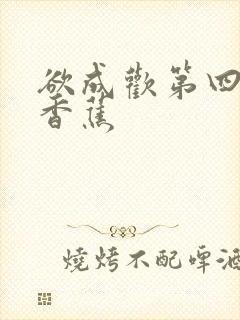 欲成歡第四
香蕉
燒烤不配啤酒